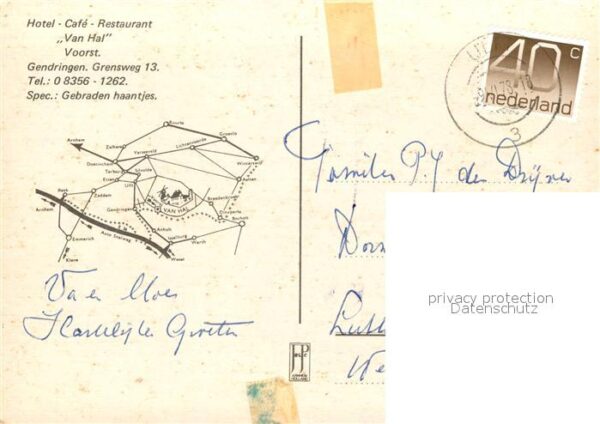 Hotel - Café - Restaurant
„Van Hal"
Voorst.
Gendringen. Grensweg 13.
Tel.: 0 8356 - 1262.
Spec.: Gebraden haantjes.
40 c
nederland
3
Familie P.J den
Arnhem
Zelhem
Ruurlo
Groenlo
Lichtenvoorde
Varsseveld
Winterswijk
Doetinchem
Terborg
Silvolde
Etten
Ulft
Aalten
Beek
Zeddam
Gendringen
VAN HAL
Breedenbroek
Dinxperlo
Bocholt
Arnhem
Auto Snelweg
Anholt
Isselburg
Werth
Emmerich
Wesel
Kleve
Van Moe
Hartelijke Groeten
privacy protection
Datenschutz